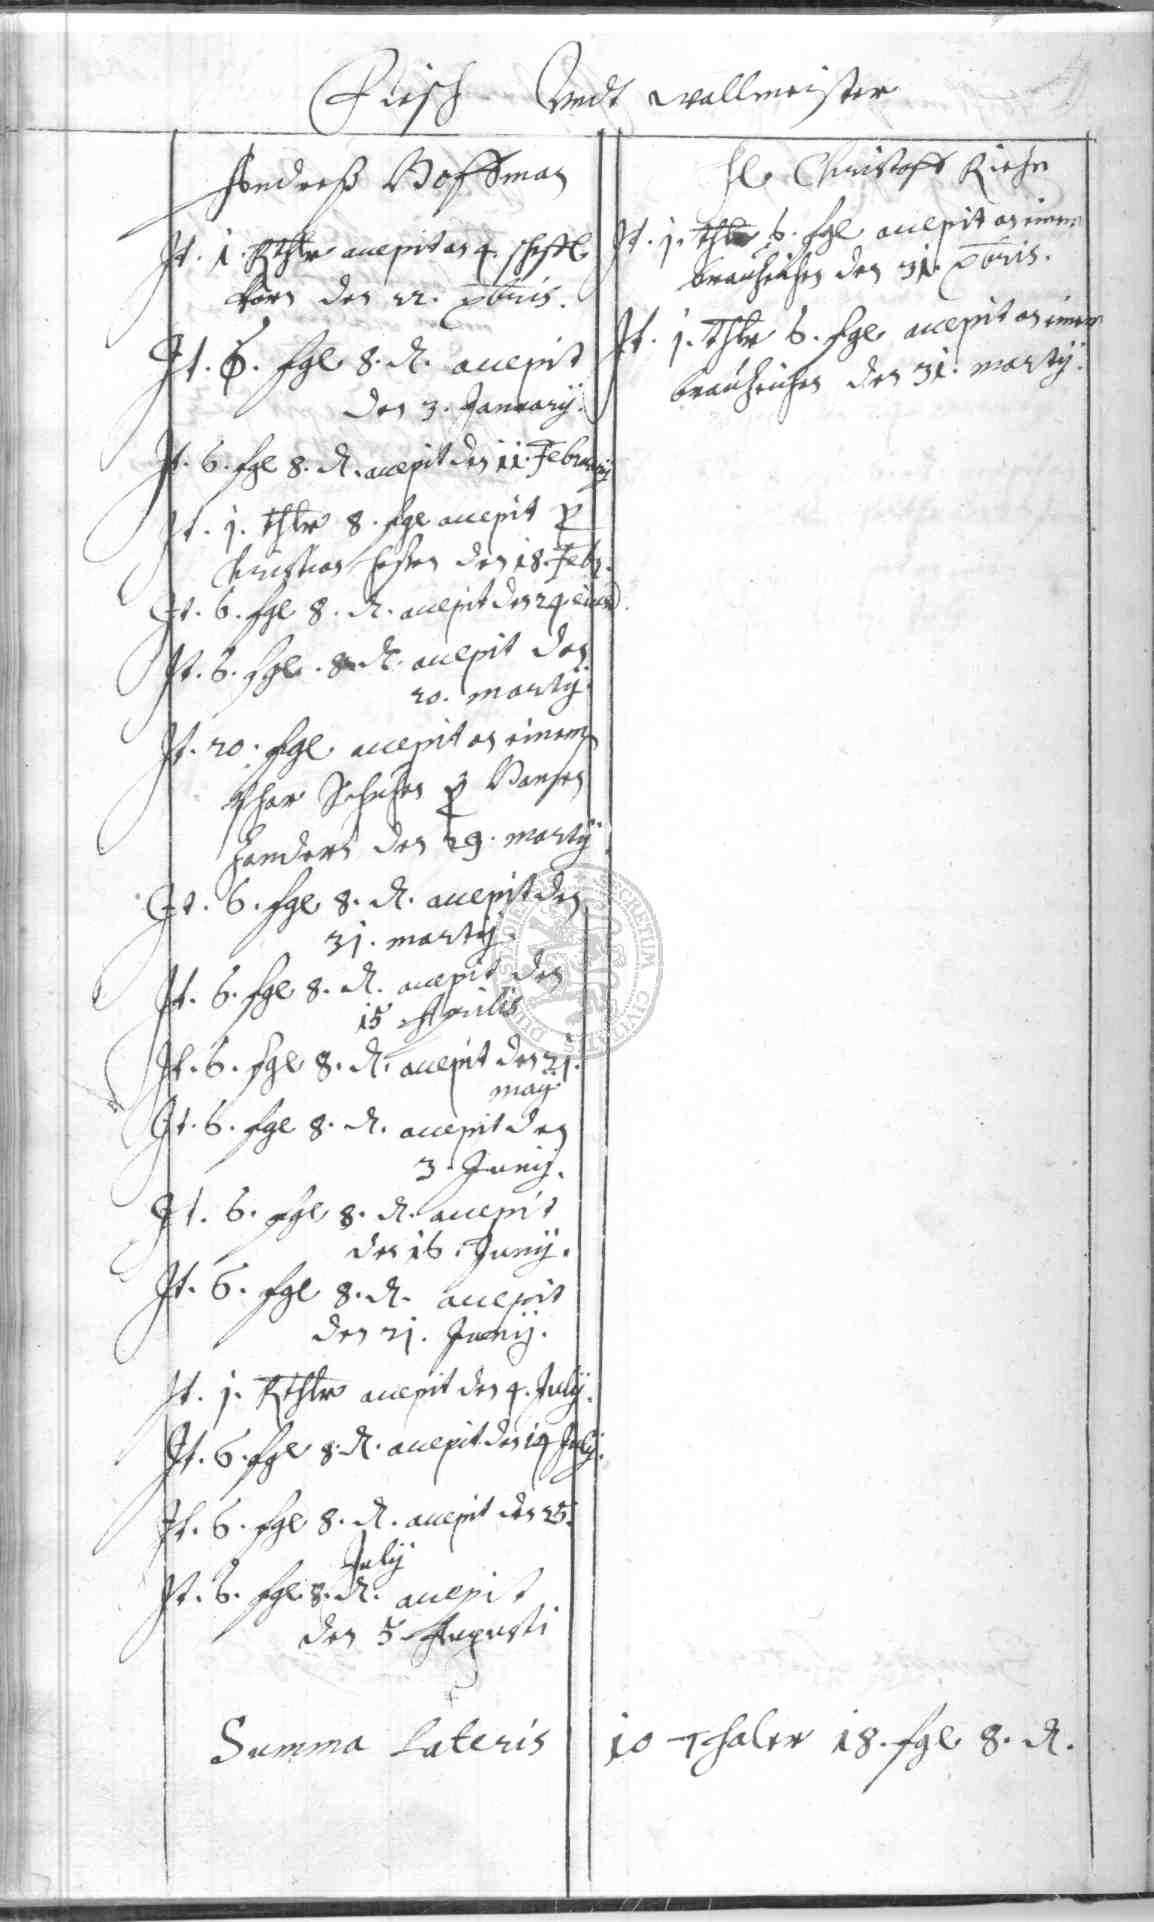 Fisch Undt wallmeister
Andreß Hoffman
It. 1. Rthlr accepit an 4. scheffl
Korn den 22. xbris.
It. 6. fgl 8. d. accepit
den 3. January.
It. 6. fgl 8. d. accepit den 11. February
It. 1. thlr 8. fgl accepit p
Christian den 18. Feb.
It. 6. fgl 8. d. accepit den 24
It. 6. fgl. 8. d. accepit den
20. marty.
It. 20. fgl accepit an einem
phar Schuhen p
den 29. marty.
It. 6. fgl 8. d. accepit den
31. marty.
It. 6. fgl 8. d. accepit den
15 Aprilis
It. 6. fgl 8. d. accepit den 21.
may
It. 6. fgl 8. d. accepit den
3. Juny.
It. 6. fgl 8. d. accepit
den 16. Juny.
It. 6. fgl 8. d. accepit
den 21. Juny.
It. 1. Rthlr accepit den 4. July.
It. 6. fgl 8. d. accepit den 14 July.
It. 6. fgl 8. d. accepit den 25.
July
It. 6. fgl 8. d. accepit
den 5 Augusti
Summa Lateris
H. Christoff
It. 1. thlr 6. fgl accepit an einem
den 31. xbris.
It. 1. thlr 6. fgl accepit an einem
den 31. marty.
10 Thaler 18. fgl 8. d.
SECRETUM CIVITATIS